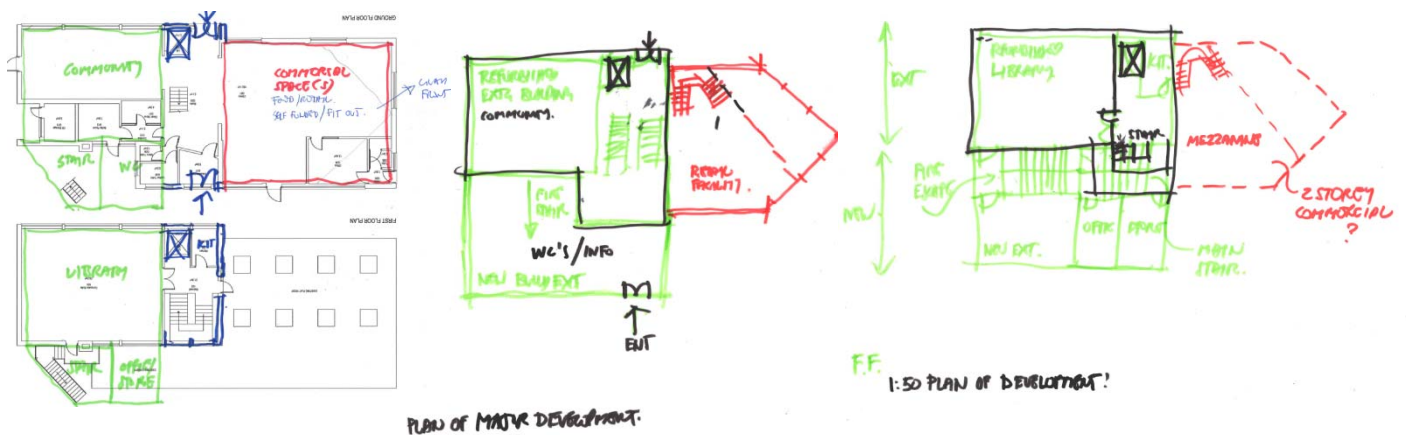 GROUND FLOOR PLAN
COMMUNITY
COMMERCIAL
SPACE(S)
FOOD/RETAIL
SELF FUNDED/FIT OUT.
GLASS
FRONT
STAIR
WC
FIRST FLOOR PLAN
LIBRARY
KIT
STAIR
OFFICE/
STORE
REFURBISHED
EXTG BUILDING
COMMUNITY.
RETAIL
FACILITY.
FIRE
STAIR
WC'S/INFO
NEW BUILD EXT
ENT
PLAN OF MAJOR DEVELOPMENT.
EXT
NEW.
REFURBISHED
LIBRARY.
KIT.
STAIR
MEZZANINE
FIRE
ESCAPE
2 STOREY
COMMERCIAL
?
NEW EXT.
OFFICE
STORE
MAIN
STAIR.
F.F.
1:50 PLAN OF DEVELOPMENT!